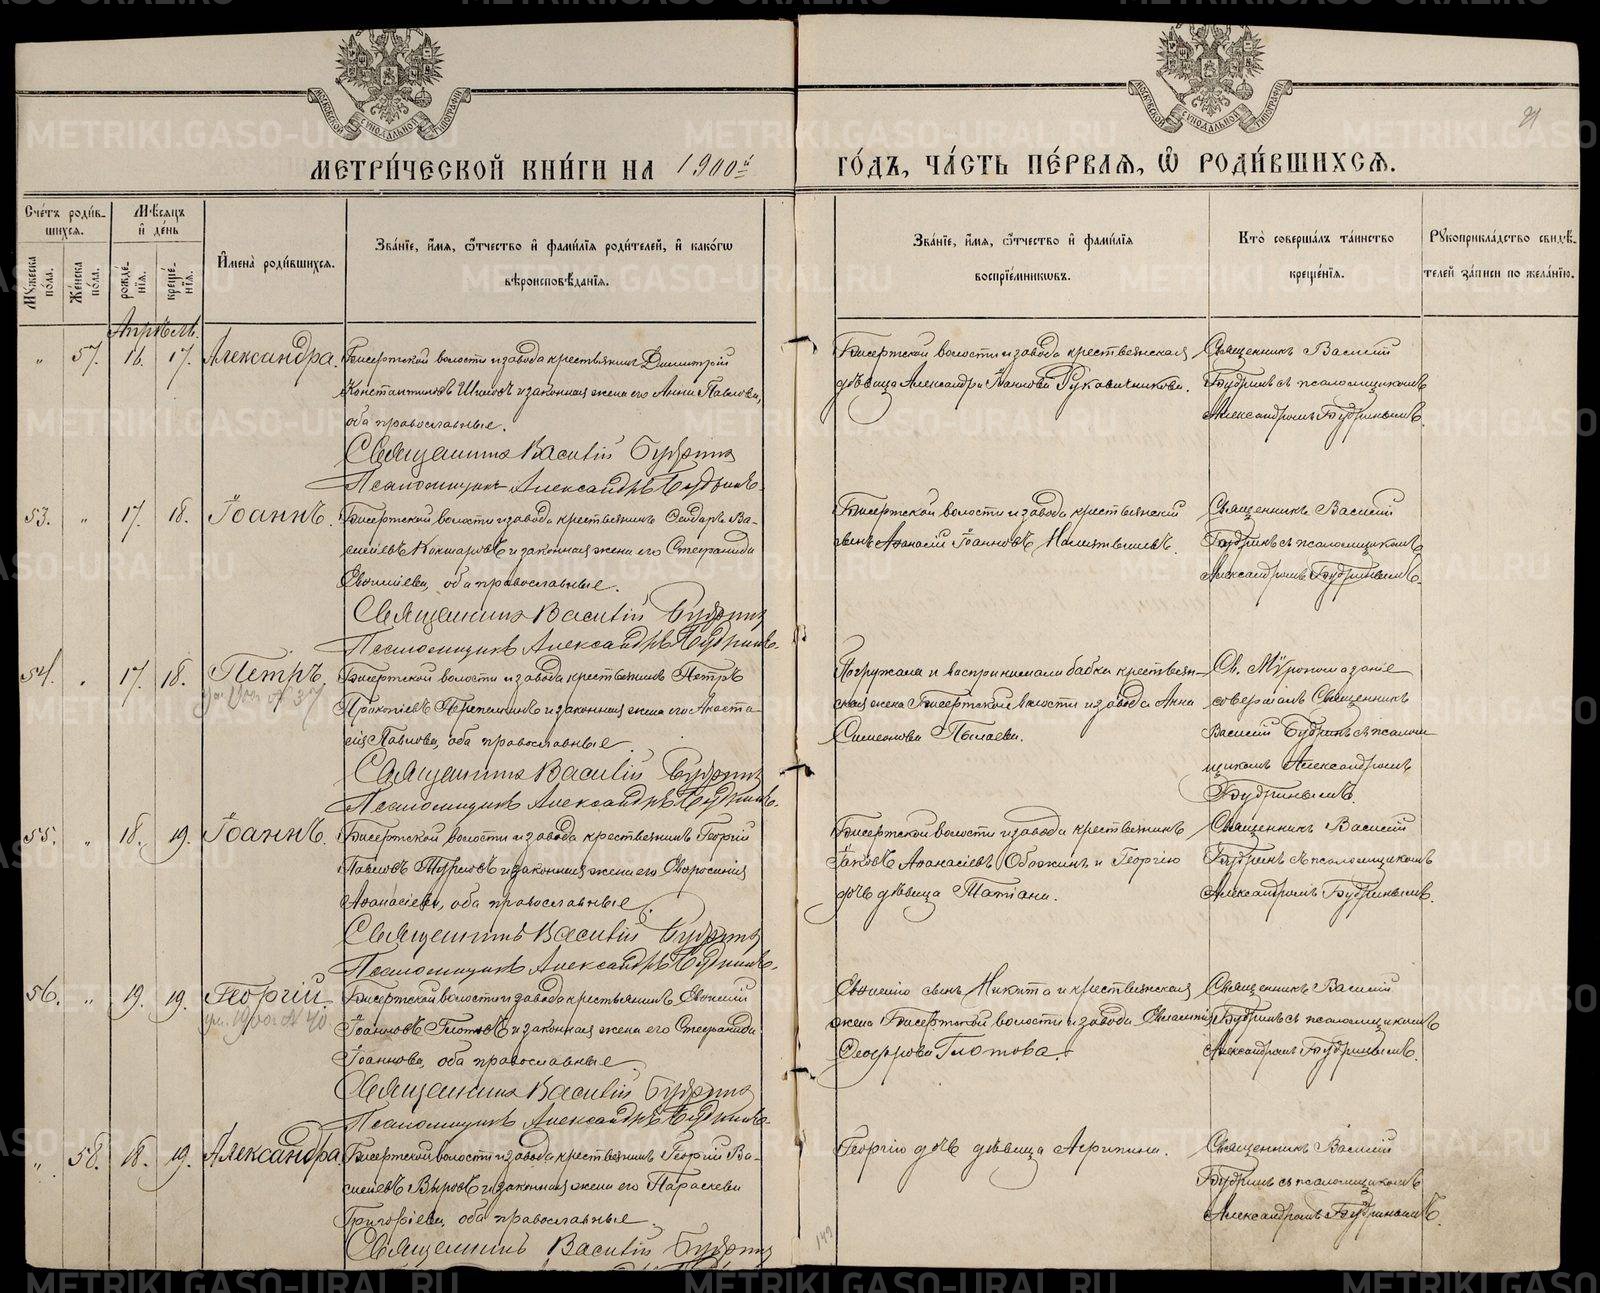 МЕТРИ́ЧЕСКОЙ КНИ́ГИ НА 1900й
ГО́ДЪ, ЧА́СТЬ ПЕ́РВАЯ, Ѽ РОДИ́ВШИХСЯ.
Сче́тъ роди́в-
шихся.
Му́жеска по́ла.
Же́нска по́ла.
Мѣ́сяцъ
и҆ де́нь
рожде́нїя.
креще́нїя.
И҆мена̀ роди́вшихся.
Зва́нїе, и҆́мя, ѻ҆́тчество и҆ фами́лїя роди́телей, и҆ како́гѡ
вѣроисповѣ́данїя.
Зва́нїе, и҆́мя, ѻ҆́тчество и҆ фами́лїя
воспрїе́мниковъ.
Кто̀ соверша́лъ та́инство
креще́нїя.
Рꙋкоприкла́дство свидѣ́-
телей за́писи по жела́нїю.
Апрѣль.
" 57. 16. 17. Александра.
Бисертской волости и завода крестьянинъ Димитрій
Константиновъ и законная жена его Анна Павлова,
оба православные.
Священникъ Василій Будринъ
Псаломщикъ Александръ Будринъ.
Бисертской волости и завода крестьянская
дѣвица Александра Іоаннова Рукавичникова.
Священникъ Василій
Будринъ съ псаломщикомъ
Александромъ Будринымъ.
53. " 17. 18. Іоаннъ.
Бисертской волости и завода крестьянинъ Ѳеодоръ Ва-
сильевъ Кокшаровъ и законная жена его Стефанида
Евѳиміева, оба православные.
Священникъ Василій Будринъ
Псаломщикъ Александръ Будринъ.
Бисертской волости и завода крестьянскій
сынъ Аѳанасій Іоанновъ
Священникъ Василій
Будринъ съ псаломщикомъ
Александромъ Будринымъ.
54. " 17. 18. Петръ.
ум. 1900 № 37
Бисертской волости и завода крестьянинъ Петръ
Прокопіевъ и законная жена его Анаста-
сія Павлова, оба православные.
Священникъ Василій Будринъ
Псаломщикъ Александръ Будринъ.
Погружала и воспринимала бабка крестьян-
ская жена Бисертской волости и завода Анна
Симеонова Пылаева.
Св. Мѵропомазаніе
совершалъ Священникъ
Василій Будринъ съ псалом
щикомъ Александромъ
Будринымъ.
55. " 18. 19. Іоаннъ.
Бисертской волости и завода крестьянинъ Георгій
Павловъ и законная жена его Евфросинія
Аѳанасіева, оба православные.
Священникъ Василій Будринъ
Псаломщикъ Александръ Будринъ.
Бисертской волости и завода крестьянинъ
Іаковъ Аѳанасіевъ Обожинъ и Георгію
дочь дѣвица Татіана.
Священникъ Василій
Будринъ съ псаломщикомъ
Александромъ Будринымъ.
56. " 19. 19. Георгій
ум. 1900 № 40
Бисертской волости и завода крестьянинъ Евѳимій
Іоанновъ Глотовъ и законная жена его Стефанида
Іоаннова, оба православные
Священникъ Василій Будринъ
Псаломщикъ Александръ Будринъ.
Евѳимію сынъ Никита и крестьянская
жена Бисертской волости и завода
Ѳеодорова Глотова.
Священникъ Василій
Будринъ съ псаломщикомъ
Александромъ Будринымъ.
" 58. 18. 19. Александра
Бисертской волости и завода крестьянинъ Георгій Ва-
сильевъ Выровъ и законная жена его Параскева
Григоріева, оба православные.
Священникъ Василій Будринъ
Георгію дочь дѣвица Агрипина.
Священникъ Василій
Будринъ съ псаломщикомъ
Александромъ Будринымъ.
METRIKI.GASO-URAL.RU